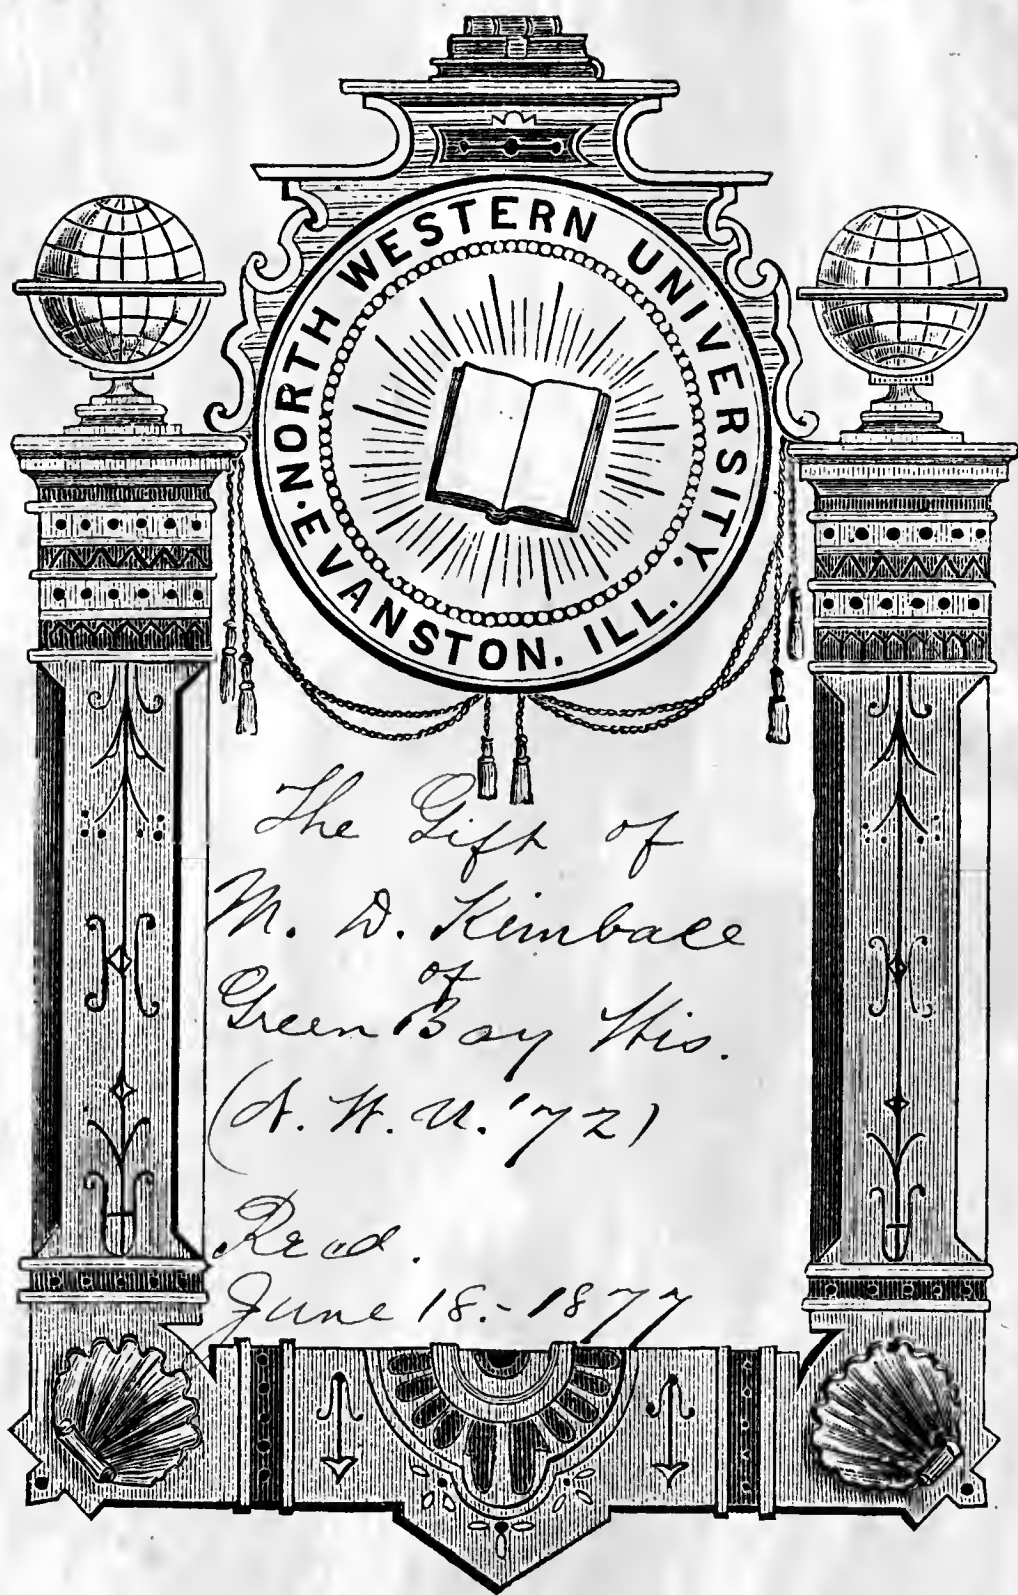 NORTH WESTERN UNIVERSITY.
EVANSTON. ILL.
The Gift of
M. D. Kimball
of
Green Bay Wis.
(N. W. U. '72)
Recd.
June 18. - 1877